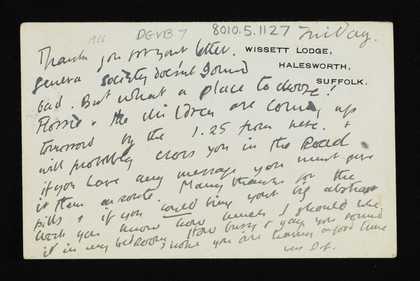 1916 DEVB 7 8010.5.1127 Friday.
WISSETT LODGE,
HALESWORTH,
SUFFOLK.
Thank you for your letter.
Geneva society doesn't sound
bad. But what a place to choose!
Flossie & the children are coming up
tomorrow by the 1.25 from here. &
will probably cross you in the Road
if you have any message you must give
it them en route. Many thanks for the
pills & if you could bring your big abstract
work you know how much I should like
it in my bedroom. How busy & gay you sound
I hope you are having a good time